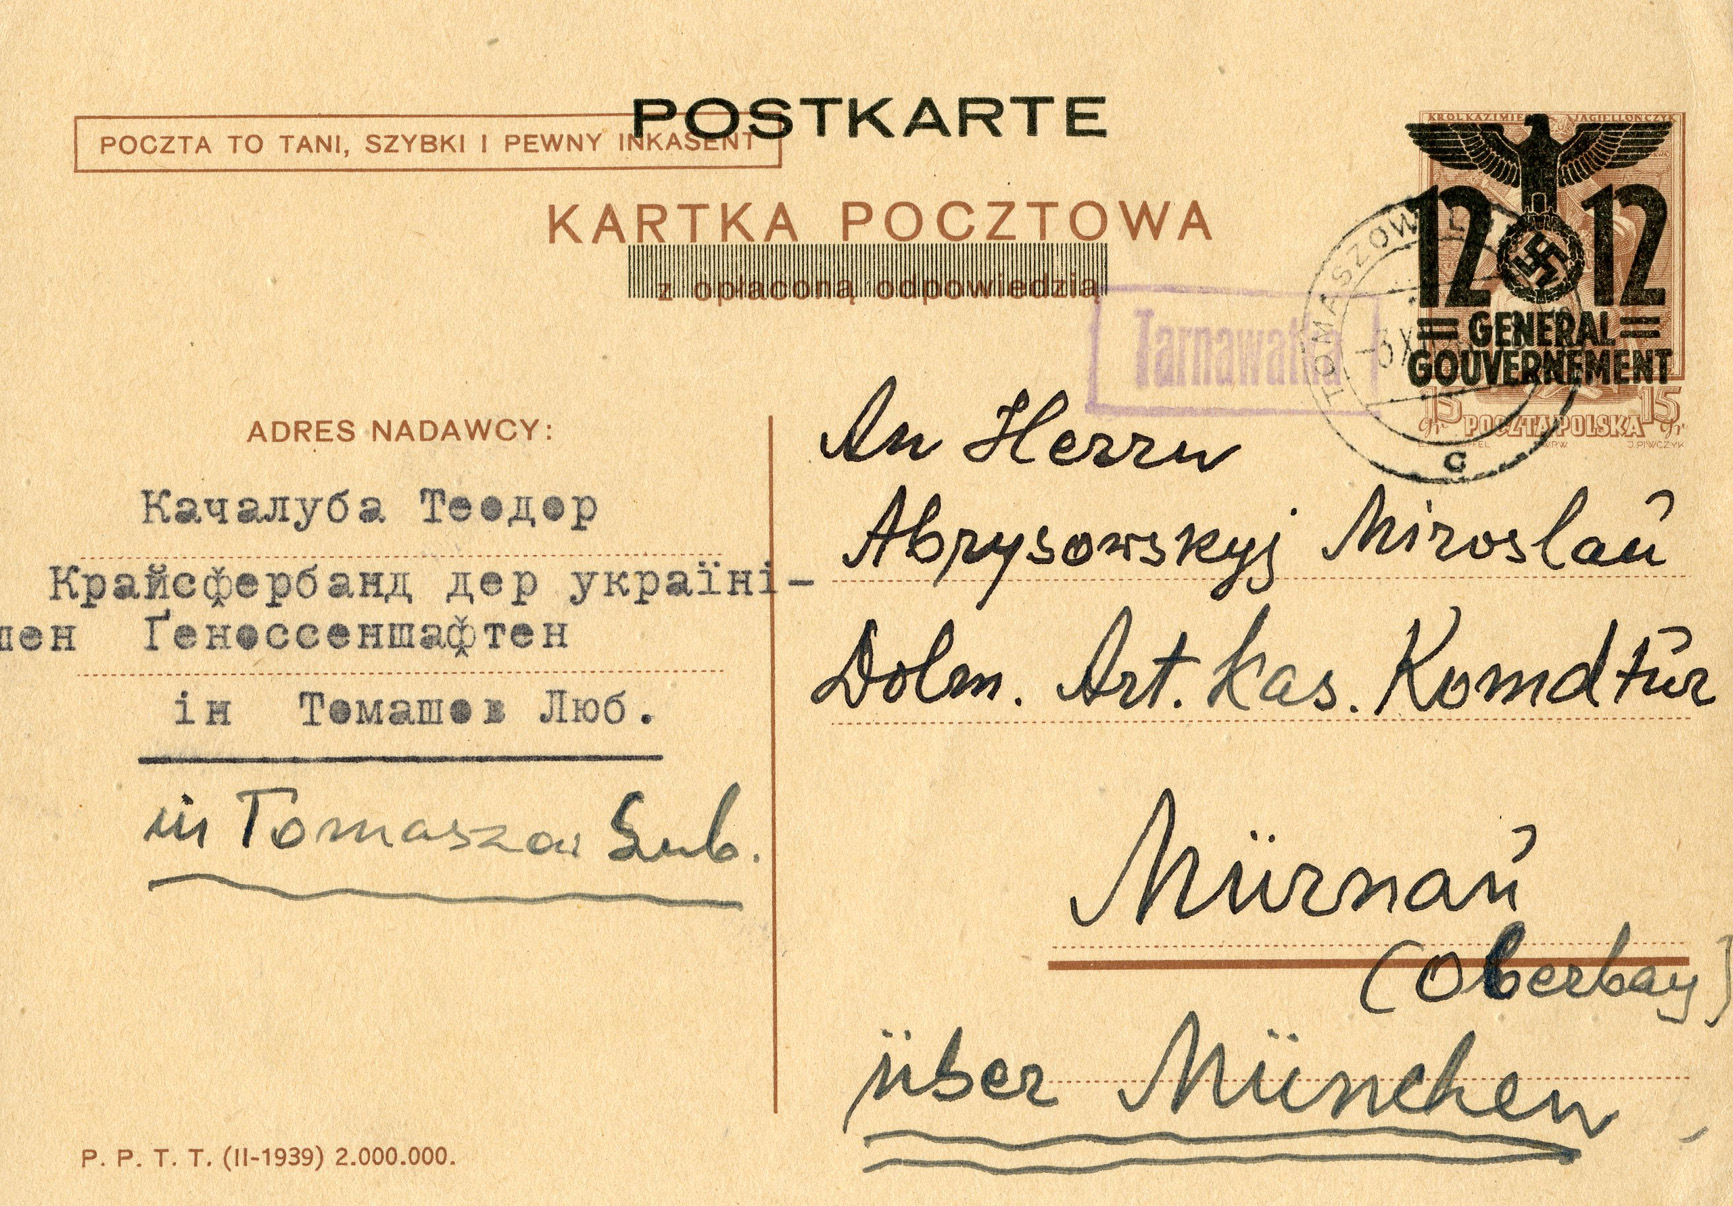 POSTKARTE
POCZTA TO TANI, SZYBKI I PEWNY INKASENT
KARTKA POCZTOWA
z opłaconą odpowiedzią
KRÓL KAZIMIERZ JAGIELLOŃCZYK
12 12
GENERAL
GOUVERNEMENT
15 gr POCZTA POLSKA 15 gr
J. PIWCZYK
TOMASZOW
-3 X
c
Tarnawatka
ADRES NADAWCY:
Качалуба Теодор
Крайсфербанд дер україні-
шен Ґеноссеншафтен
ін Томашов Люб.
in Tomaszow Lub.
An Herrn
Abrysowskyj Miroslaŭ
Dolm. Art. Kas. Komdtur
Mürnaŭ
(Oberbay)
über München
P. P. T. T. (II-1939) 2.000.000.